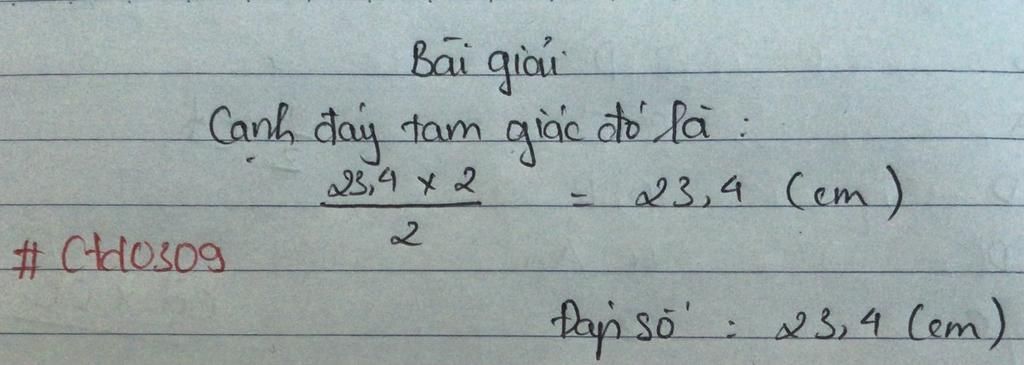 Bài giải
Cạnh đáy tam giác đó là :
23,4 x 2 / 2 = 23,4 (cm)
# Ctd0309
Đáp số : 23,4 (cm)